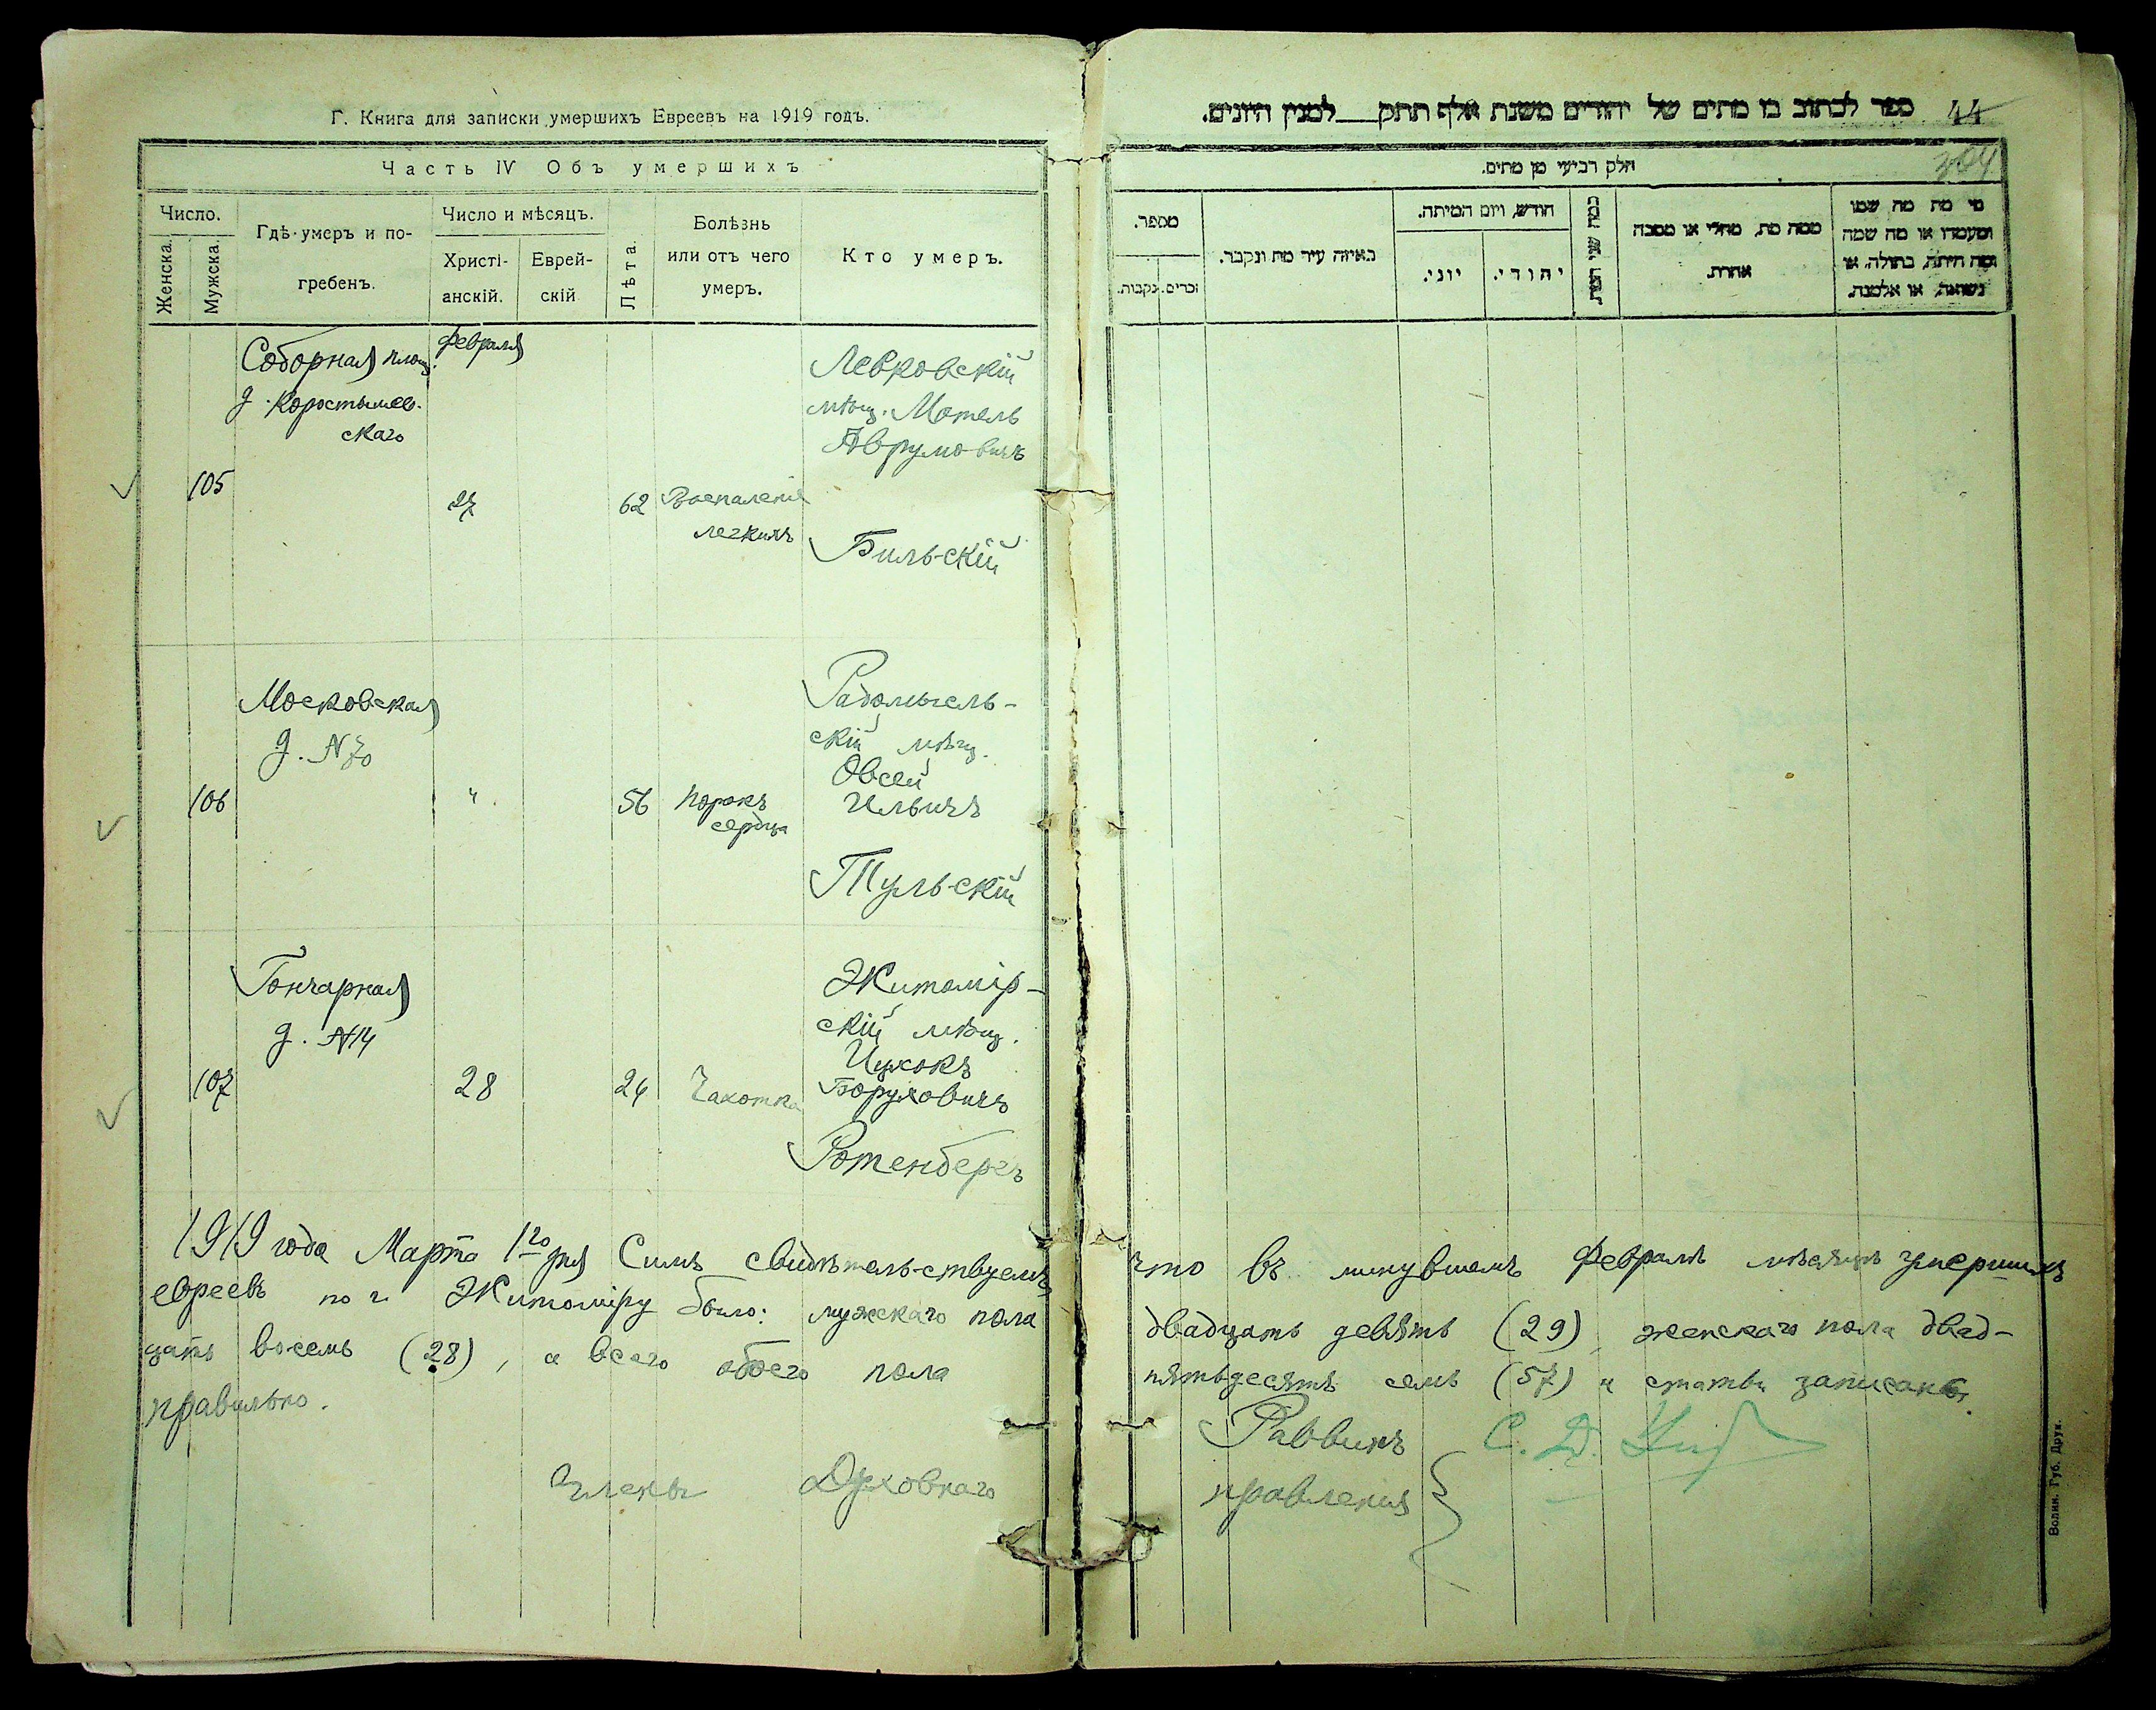 Г. Книга для записки умершихъ Евреевъ на 1919 годъ.
Часть IV Объ умершихъ
Число.
Женска.
Мужска.
Гдѣ умеръ и по-
гребенъ.
Число и мѣсяцъ.
Христі-
анскій.
Еврей-
скій
Лѣта.
Болѣзнь
или отъ чего
умеръ.
Кто умеръ.
Соборная площ.
д. Коростышев-
скаго
Февраля
105
27
62
Воспаленіе
легкихъ
Левковскій
мѣщ. Мотель
Аврумовичъ
Бильскій
Московская
д. N 70
106
"
56
Порокъ
сердца
Радомысль-
скій мѣщ.
Овсей
Ильичъ
Тульскій
Гончарная
д. N 14
107
28
24
Чахотка
Житомір-
скій мѣщ.
Ицхокъ
Боруховичъ
Ротенбергъ
ספר לכתוב בו מתים של יהודים משנת אלף תתק למנין היונים.
44
304
חלק רביעי מן מתים.
מספר.
זכרים.
נקבות.
באיזה עיר מת ונקבר.
חודש, ויום המיתה.
יוני.
יהודי.
כמה שני המת
ממה מת, מחלי או מסבה
אחרת.
מי מת מה שמו
ומעמדו או מה שמה
ומה היתה, בתולה, או
נשואה, או אלמנה.
1919 года Марта 1го дня Симъ свидѣтельствуемъ что въ минувшемъ Февралѣ мѣсяцѣ умершихъ
евреевъ по г. Житоміру было: мужскаго пола двадцать девять (29), женскаго пола двад-
цать восемь (28), а всего обоего пола пятьдесятъ семь (57) и статьи записаны
правильно.
Раввинъ С. Д.
Члены Духовнаго правленія
Волин. Губ. Друк.